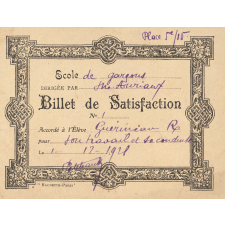 Place 5e/15
École de garçons
DIRIGÉE PAR
Billet de Satisfaction
N° 1
Accordé à l'Élève Guérinéau R.
pour son travail et sa conduite
Le 1 - 12 - 1928